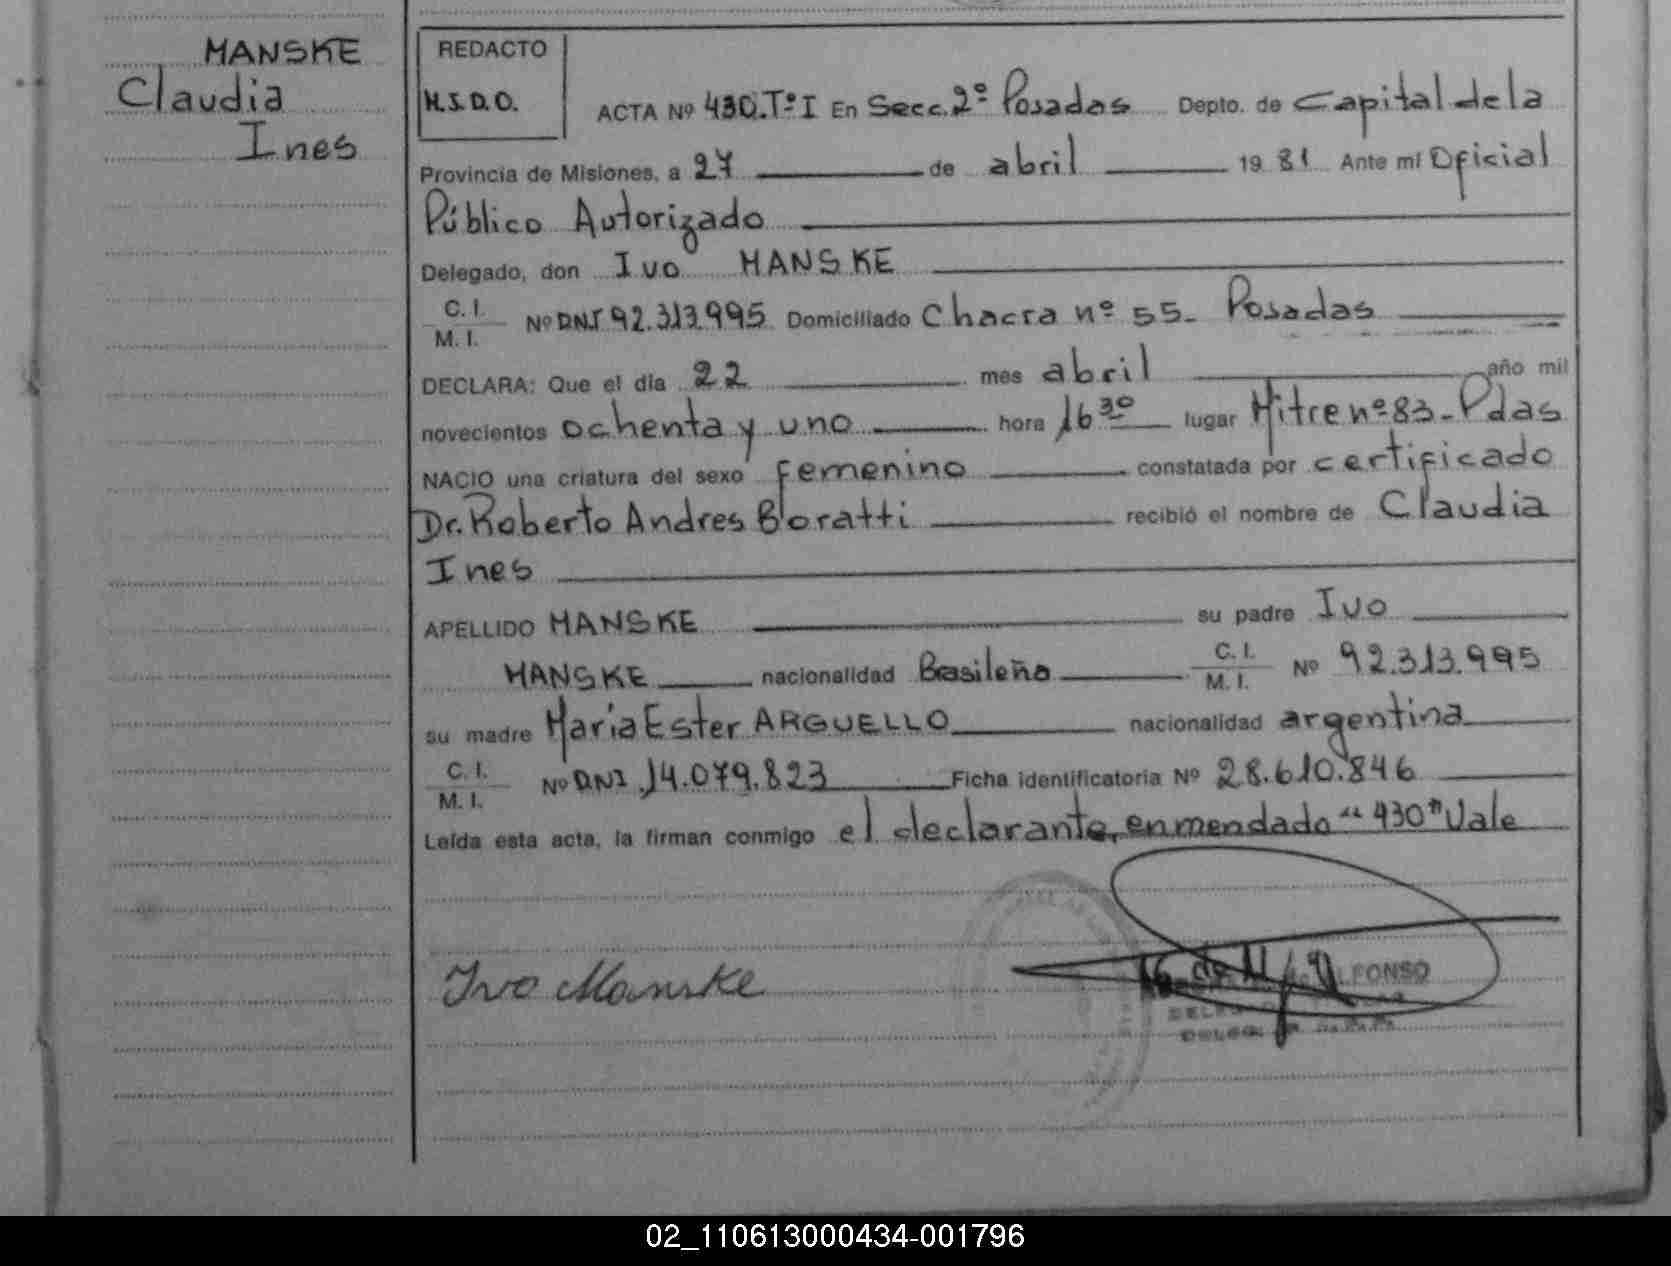 MANSKE
Claudia
Ines
REDACTO
M.S.D.O.
ACTA Nº 430.Tº I En Secc. 2º Posadas Depto. de Capital de la
Provincia de Misiones, a 27 de abril 19 81 Ante mí Oficial
Público Autorizado
Delegado, don Ivo MANSKE
C. I.
M. I.
Nº DNI 92.313.995 Domiciliado Chacra nº 55- Posadas
DECLARA: Que el día 22 mes abril año mil
novecientos ochenta y uno hora 16 30 lugar Mitre nº 83- Pdas
NACIO una criatura del sexo femenino constatada por certificado
Dr. Roberto Andres Boratti recibió el nombre de Claudia
Ines
APELLIDO MANSKE su padre Ivo
MANSKE nacionalidad Brasileña C. I.
M. I. Nº 92.313.995
su madre Maria Ester ARGUELLO nacionalidad argentina
C. I.
M. I.
Nº DNI. 14.079.823 Ficha identificatoria Nº 28.610.846
Leída esta acta, la firman conmigo el declarante, enmendado "430" Vale
Ivo Manske
02_110613000434-001796